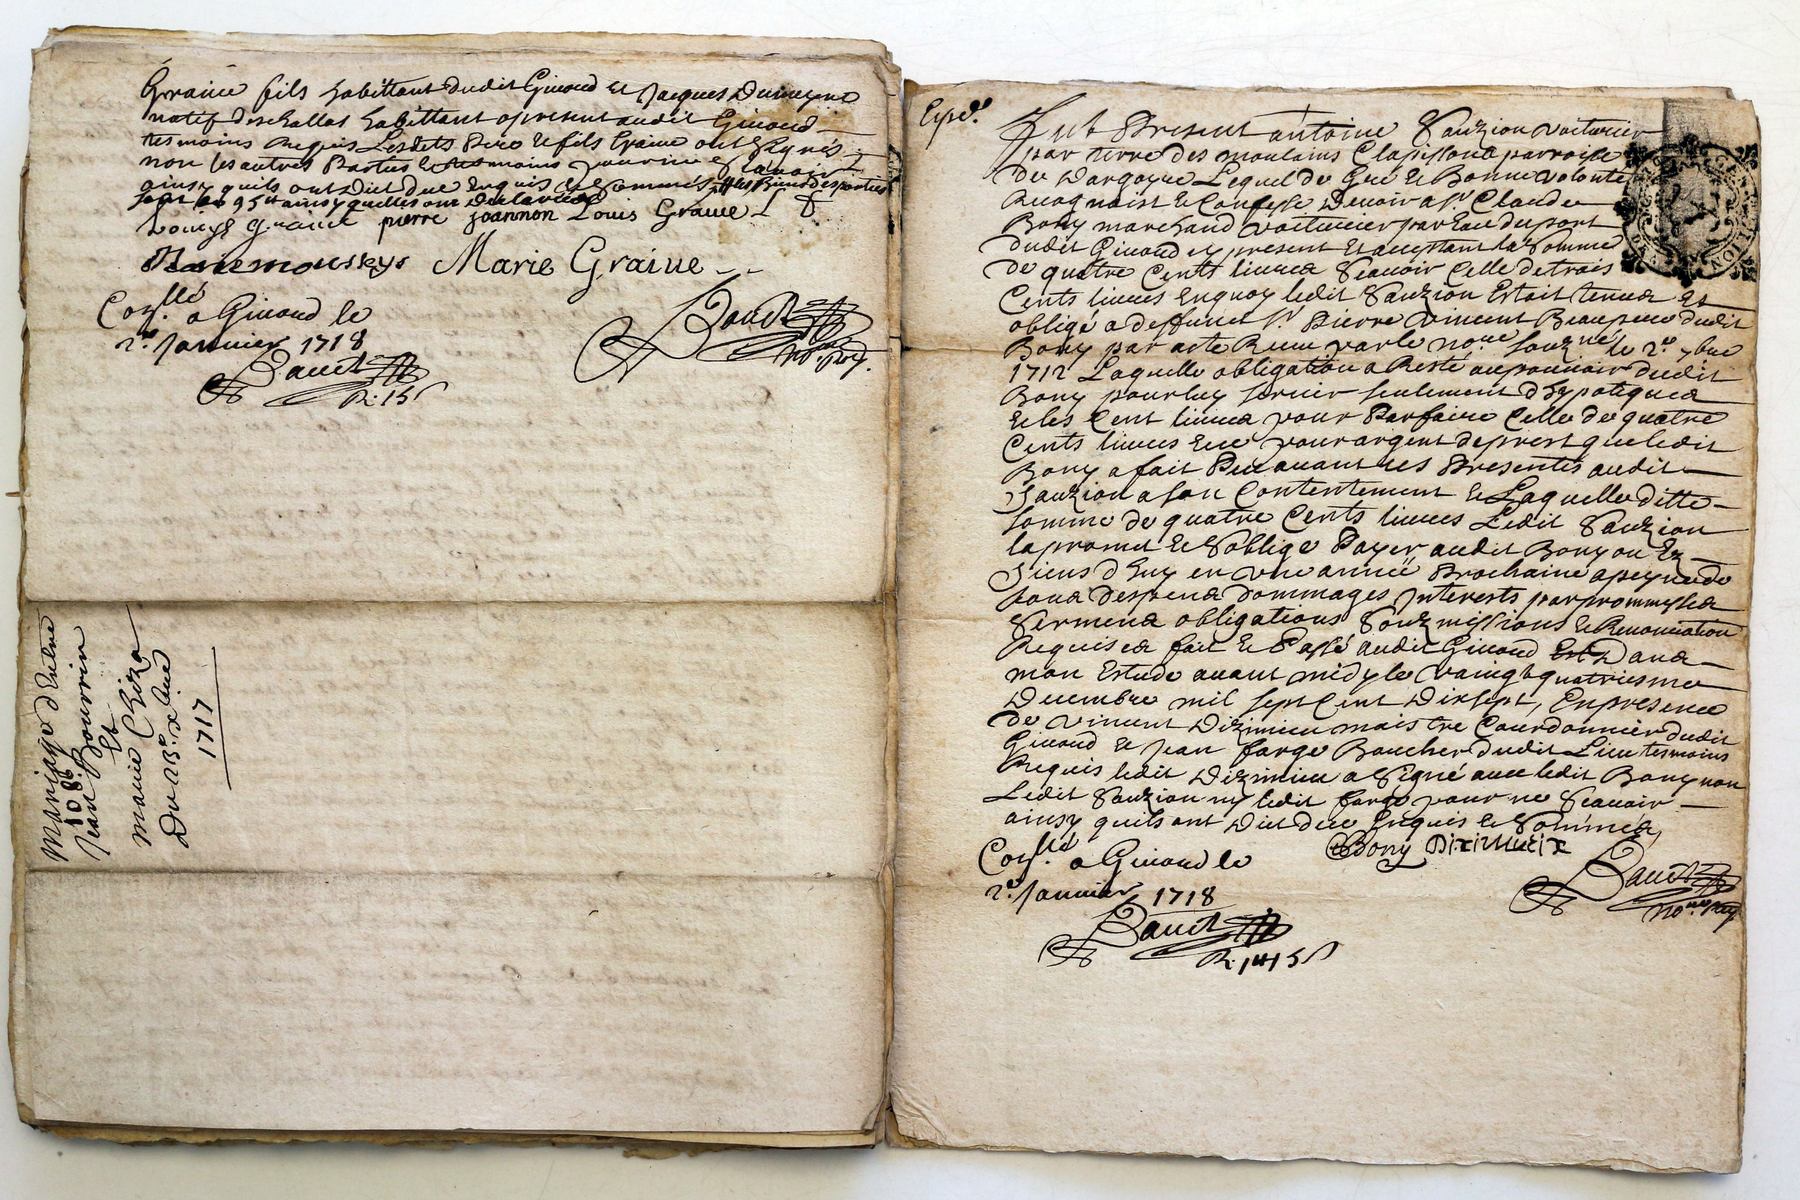 Graine fils habittant dudit Givord et Jacques
natif deschallas habittant apresent audit Givord
tesmoins Requis Lesdits Pere et fils Graine ont signés
non les autres Parties et tesmoins pour ne sçavoir
ainsy quils ont Dict due Enquis et Sommés, et les Biens desparties
sont de 95 ₶ ainsy quelles ont declarés
pierre joannon Louis Graine
Marie Graine
Con.llé a Givord le
2e Janvier 1718
R. 15 s
no.re roy.
Mariage d'Entre
1086
Jean Bourrin
Et
marie Chiza
Du 1717
Exped.
Fut Present antoine Sauzion voiturier
par terre des moulins Clapisson parroisse
de Dargoyre Lequel de Gré et Bonne volonté
Recognoist et Confesse Devoir a Sr Claude
Bony marchand voiturier par Eau du pont
dudit Givord cy present et acceptant la Somme
de quatre Cents livres Scavoir Celle de trois
Cents livres Enquoy ledit Sauzion Estoit tenu et
obligé a deffunct Sr Pierre Vincent Beaupere dudit
Bony par acte Receu par le no.re souz.né le 2e 7bre
1712 Laquelle obligation a Resté au pouvoir dudit
Bony pour luy servir seulement d'hypoteques
et les Cent livres pour Parfaire Celle de quatre
Cents livres Ece pour argent de prest que ledit
Bony a fait Peu avant ces Presentes audit
Sauzion a son Contentement et Laquelle ditte
somme de quatre Cents livres Ledit Sauzion
la promet et S'oblige Payer audit Bony ou Ez
Siens d'huy en une année Prochaine a peyne de
tous despens dommages Interests par prommesses
Sermens obligations Souzmissions et Renonciation
Requises fait et Passé audit Givord Dans
mon Estude avant midy le vaingt quatriesme
Decembre mil sept Cent Dixsept, En presence
de Vincent Dizimieu maistre Courdonnier dudit
Givord et Jean farge Boucher dudit Lieu tesmoins
Requis ledit Dizimieu a Signé avec ledit Bony non
Ledit Sauzion ny ledit farge pour ne Scavoir
ainsy quils ont Dict deue Enquis et Sommés,
Bony Diximieix
Con.llé a Givord le
2e Janvier 1718
no.re roy.
R. 1₶ 15 s